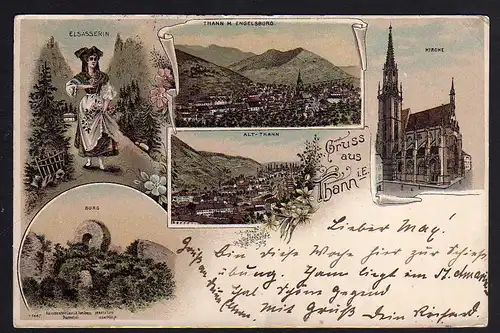 ELSÄSSERIN.
THANN M. ENGELSBURG.
KIRCHE
ALT-THANN
Gruss
aus
Thann i.E.
BURG
Lieber Max!
Bin diese Woche hier zur Schieß
übung. Thann liegt im
Thal Schöne Gegend
Mit Gruß Dein Richard.